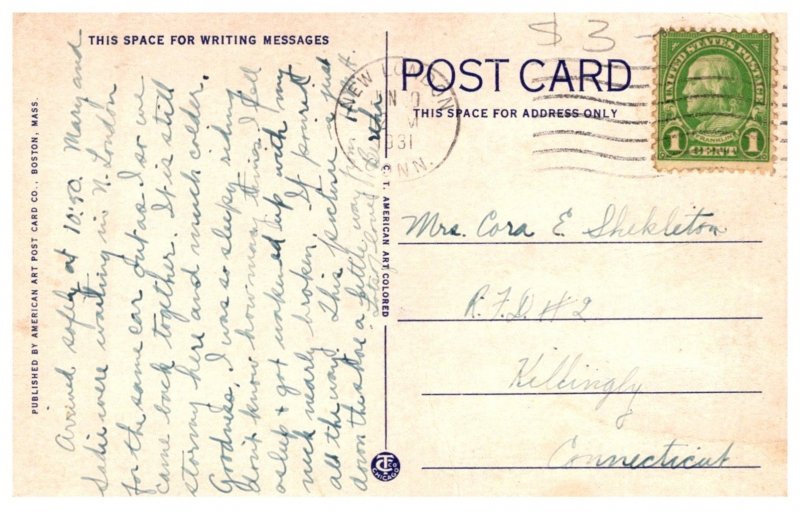 THIS SPACE FOR WRITING MESSAGES
Arrived safely at 10:50. Mary and
Sadie were waiting in N. London
for the same car out as I so we
came back together. It is still
stormy here and much colder.
Goodness, I was so sleepy riding
don't know how many times I fell
asleep & got waked up with my
neck nearly broken. It poured
all the way. This picture is just
down the shore a little way from
Lots of love
PUBLISHED BY AMERICAN ART POST CARD CO., BOSTON, MASS.
C. T. AMERICAN ART COLORED
CHICAGO
$3-
NEW LONDON
JUN
1931
CONN.
UNITED STATES POSTAGE
FRANKLIN
1 CENT 1
POST CARD
THIS SPACE FOR ADDRESS ONLY
Mrs. Cora E. Shekleton
R.F.D. #2
Killingly
Connecticut